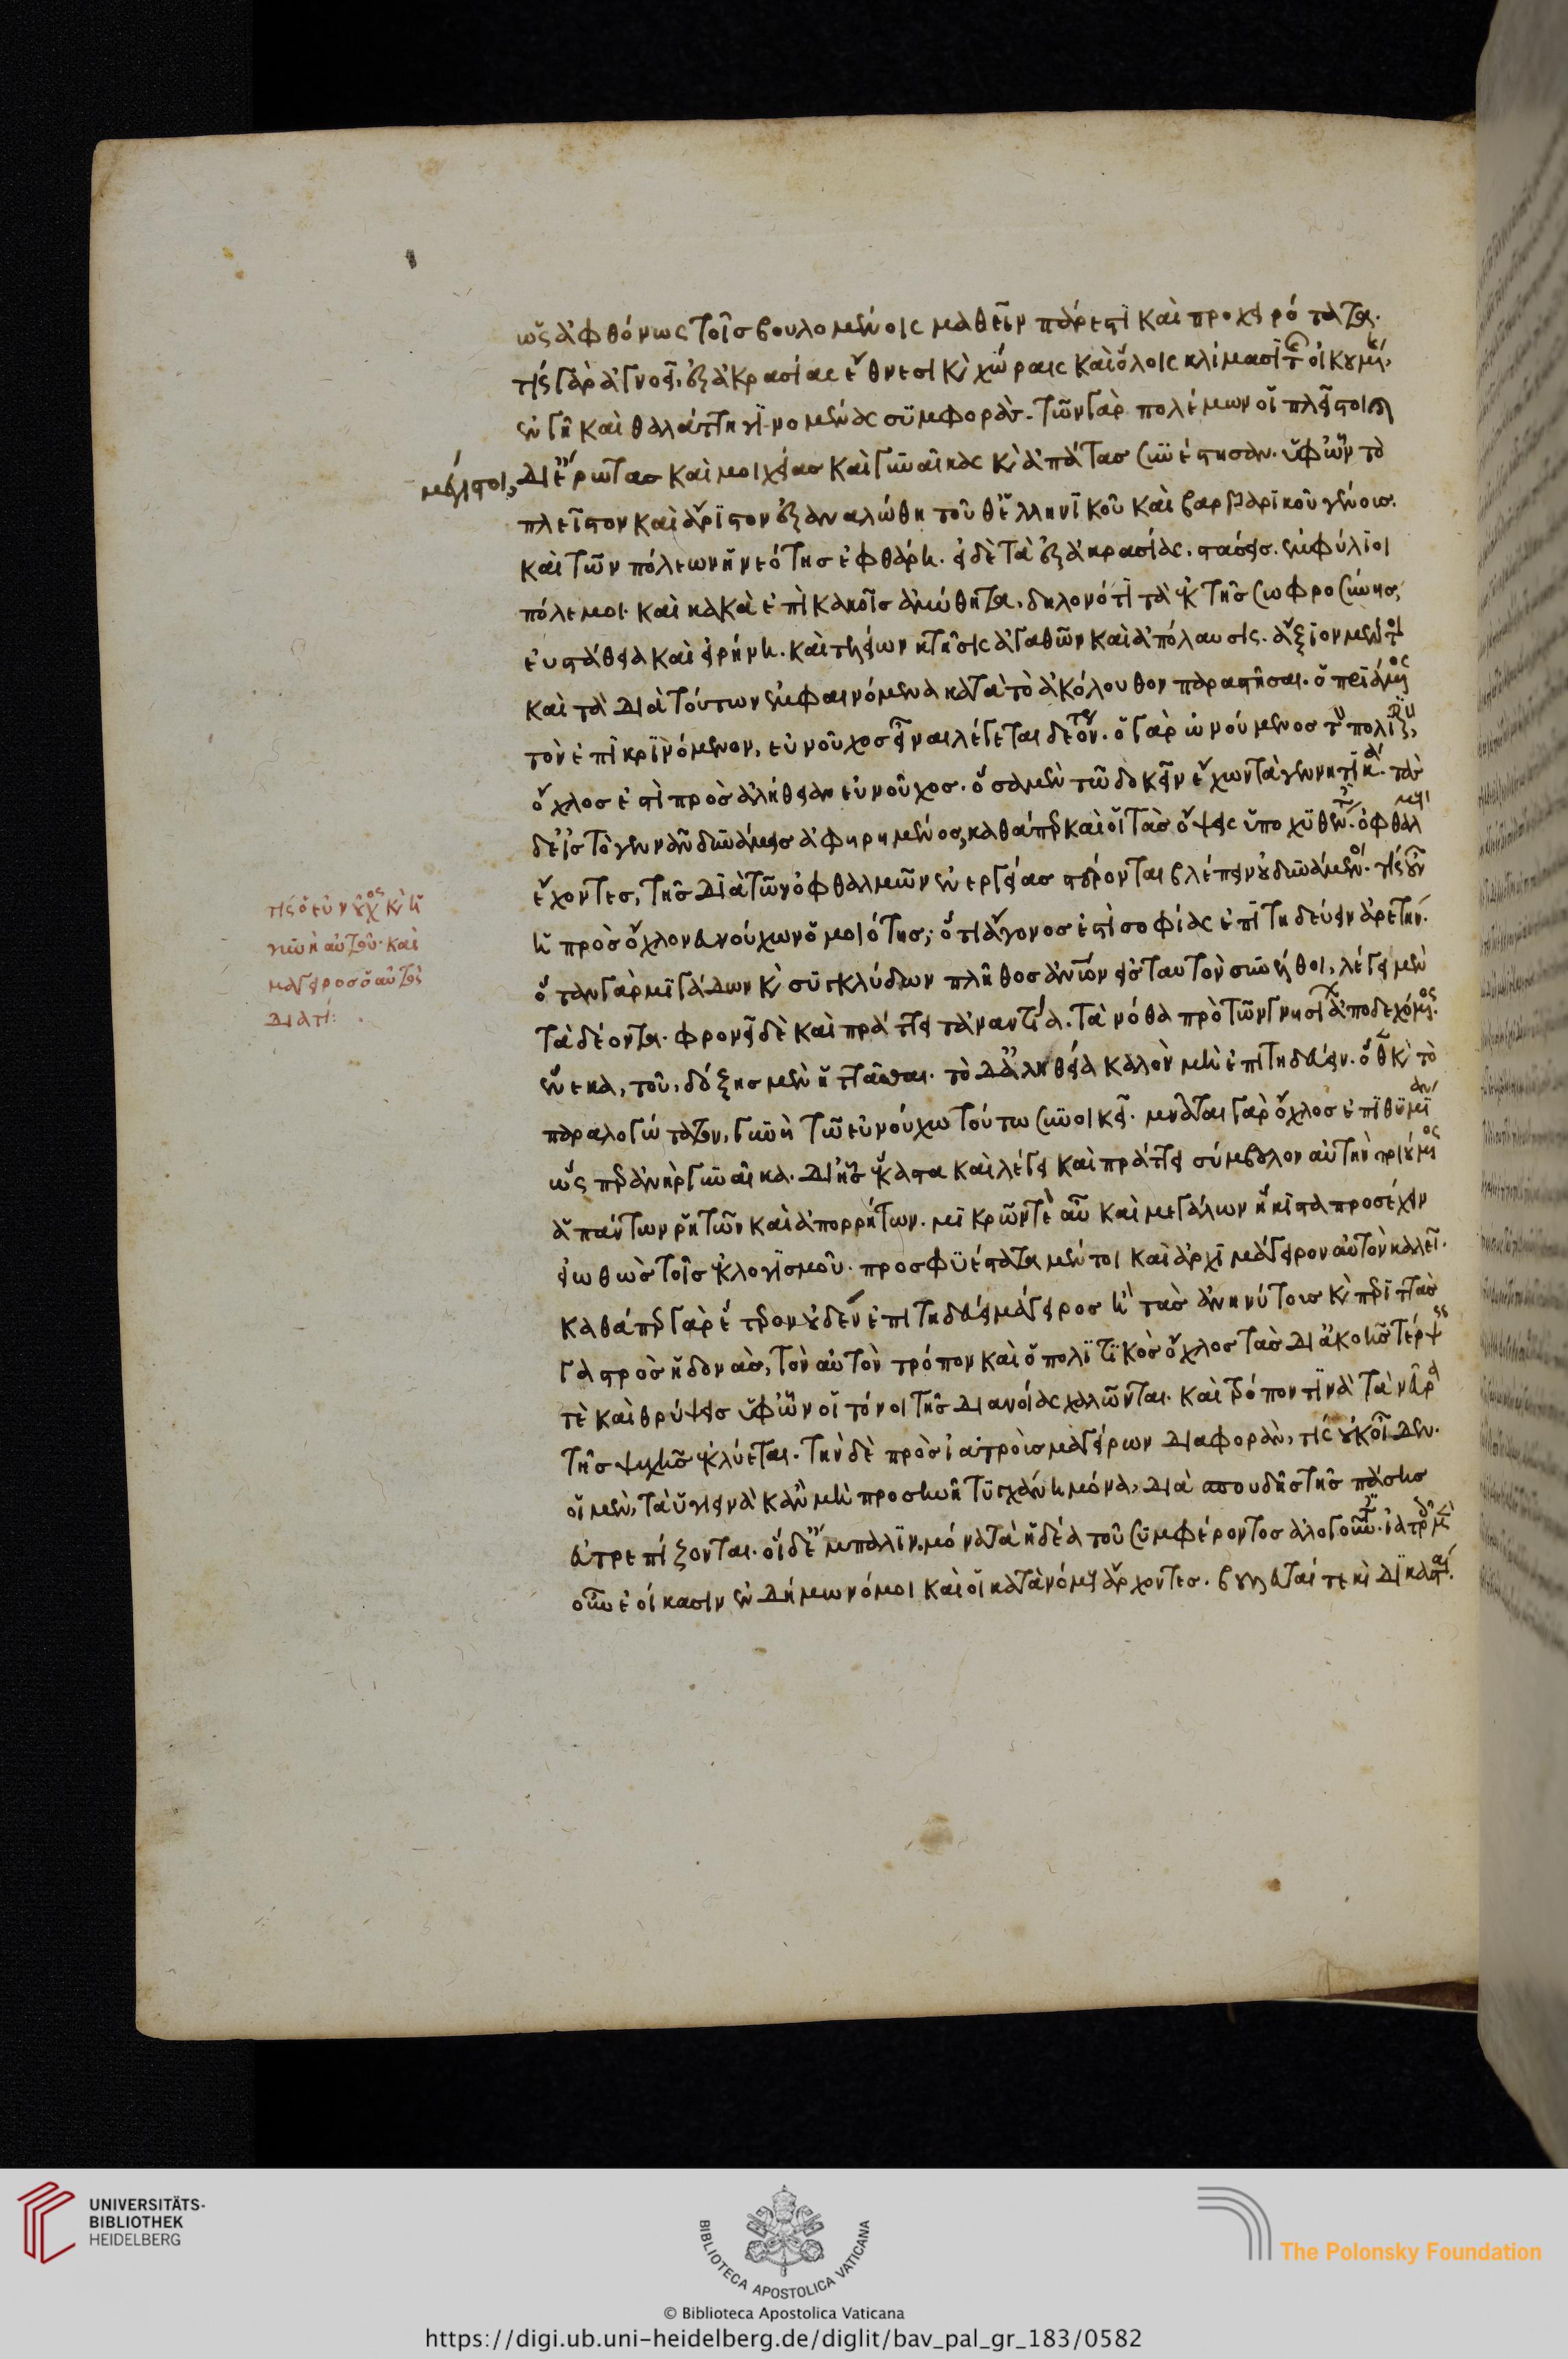 ὡς ἀφθόνως τοῖς βουλομένοις μαθεῖν πάρεστι καὶ προχειρότατα.
τίς γὰρ ἀγνοεῖ. ἐξ ἀκρασίας ἔθνεσι καὶ χώραις καὶ ὅλοις κλίμασι τῆς οἰκουμένης,
ἐν γῆ καὶ θαλάττη γινομένας συμφοράς. τῶν γὰρ πολέμων οἱ πλεῖστοι καὶ
μέγιστοι, δι' ἔρωτας καὶ μοιχείας καὶ γυναῖκας καὶ ἀπάτας συνέστησαν. ὑφ' ὧν τὸ
πλεῖστον καὶ ἄριστον ἐξαναλώθη τοῦ θ' ἑλληνικοῦ καὶ βαρβαρικοῦ γένους.
καὶ τῶν πόλεων ἡ νεότης ἐφθάρη. εἰ δὲ τὰ ἐξ ἀκρασίας. στάσεις. ἐμφύλιοι
πόλεμοι. καὶ κακὰ ἐπὶ κακοῖς ἀμύθητα, δηλονότι τὰ ἐκ τῆς σωφροσύνης,
εὐστάθεια καὶ εἰρήνη. καὶ τελείων κτῆσις ἀγαθῶν καὶ ἀπόλαυσις. ἄξιον μέντοι
καὶ τὰ διὰ τούτων ἐμφαινόμενα κατὰ τὸ ἀκόλουθον παραστῆσαι. ὁ πριάμενος
τὸν ἐπικρινόμενον, εὐνοῦχος εἶναι λέγεται δεόντως. ὁ γὰρ ὠνούμενος τὸν πολιτικὸν,
ὄχλος ἐστὶ πρὸς ἀλήθειαν εὐνοῦχος. ὅσα μὲν τῶ δοκεῖν ἔχων τὰ γεννητικά. τὰς
δ' εἰς τὸ γεννᾶν δυνάμεις ἀφηρημένος, καθάπερ καὶ οἱ τὰς ὄψεις ὑποχυθέντες. ὀφθαλμοὺς
ἔχοντες, τῆς διὰ τῶν ὀφθαλμῶν ἐνεργείας στέρονται βλέπειν οὐ δυνάμενοι. τίς οὖν
ἡ πρὸς ὄχλον εὐνούχων ὁμοιότης; ὅτι ἄγονος ἐστὶ σοφίας ἐπιτηδεύειν ἀρετήν.
ὅταν γὰρ μιγάδων καὶ συγκλύδων πλῆθος ἀνθρώπων εἰς ταυτὸν συνέλθοι, λέγει μὲν
τὰ δέοντα. φρονεῖ δὲ καὶ πράττει τἀναντία. τὰ νόθα πρὸ τῶν γνησίων ἀποδεχόμενος.
ἕνεκα, τοῦ, δόξης μὲν ἡττᾶσθαι. τὸ δ' ἀληθεία καλὸν μὴ ἐπιτηδεύειν. ὅθεν καὶ τὸ
παραλογώτατον, γυνὴ τῶ εὐνούχω τούτω συνοικεῖ. μνᾶται γὰρ ὄχλος ἐπιθυμίαν
ὥσπερ ἀνὴρ γυναῖκα. δι' ἧς ἕκαστα καὶ λέγει καὶ πράττει σύμβουλον αὐτὴν ποιούμενος
ἁπάντων ῥητῶν καὶ ἀπορρήτων. μικρῶν τὲ αὖ καὶ μεγάλων ἥκιστα προσέχειν
εἰωθὼς τοῖς ἐκ λογισμοῦ. προσφυέστατα μέντοι καὶ ἀρχιμάγειρον αὐτὸν καλεῖ.
καθάπερ γὰρ ἕτερον οὐδὲν ἐπιτηδεύει μάγειρος ἢ τὰς ἀνηνύτους καὶ περιττὰς
γαστρὸς ἡδονὰς, τὸν αὐτὸν τρόπον καὶ ὁ πολιτικὸς ὄχλος τὰς δι' ἀκοῆς τέρψεις
τὲ καὶ θρύψεις ὑφ' ὧν οἱ τόνοι τῆς διανοίας χαλῶνται. καὶ τρόπον τινὰ τὰ νεῦρα
τῆς ψυχῆς ἐκλύεται. τὴν δὲ πρὸς ἰατροὺς μαγείρων διαφορὰν, τίς οὐκ οἶδεν.
οἱ μὲν, τὰ ὑγιεινὰ κἂν μὴ προσηνῆ τυγχάνη μόνα, διὰ σπουδῆς τῆς πάσης
εὐτρεπίζονται. οἱ δ' ἔμπαλιν. μόνα τὰ ἡδέα τοῦ συμφέροντος ἀλογοῦντες. ἰατροῖς μὲν
οὖν ἐοίκασιν ἐν δήμω νόμοι καὶ οἱ κατὰ νόμους ἄρχοντες. βουλευταί τε καὶ δικασταί.
τίς ὁ εὐνοῦχος καὶ ἡ
γυνὴ αὐτοῦ. καὶ
μάγειρος ὁ αὐτὸς
διατί:
UNIVERSITÄTS-
BIBLIOTHEK
HEIDELBERG
BIBLIOTECA APOSTOLICA VATICANA
The Polonsky Foundation
© Biblioteca Apostolica Vaticana
https://digi.ub.uni-heidelberg.de/diglit/bav_pal_gr_183/0582